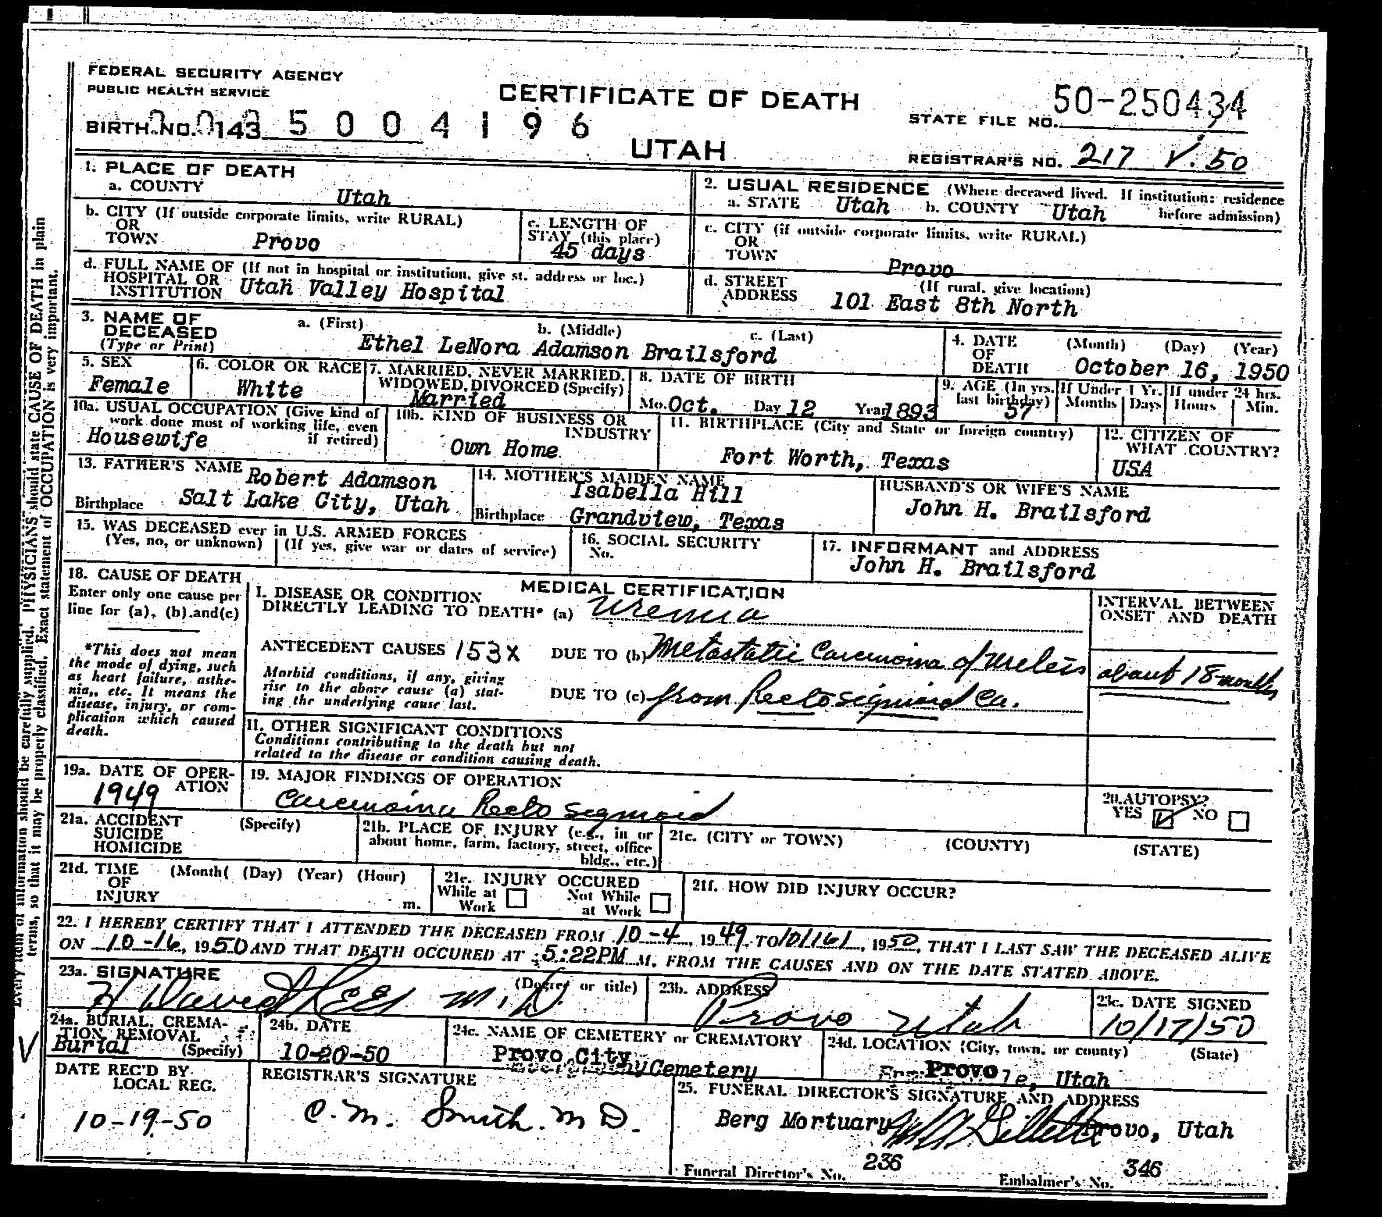 FEDERAL SECURITY AGENCY
PUBLIC HEALTH SERVICE
CERTIFICATE OF DEATH
UTAH
BIRTH NO. 143 5 0 0 4 1 9 6
STATE FILE NO. 50-250434
REGISTRAR'S NO. 217 V. 50
1. PLACE OF DEATH
a. COUNTY Utah
b. CITY (If outside corporate limits, write RURAL)
OR
TOWN Provo
c. LENGTH OF
STAY (this place)
45 days
d. FULL NAME OF (If not in hospital or institution, give st. address or loc.)
HOSPITAL OR
INSTITUTION Utah Valley Hospital
2. USUAL RESIDENCE (Where deceased lived. If institution: residence
before admission)
a. STATE Utah b. COUNTY Utah
c. CITY (if outside corporate limits, write RURAL)
OR
TOWN Provo
d. STREET (If rural, give location)
ADDRESS 101 East 8th North
3. NAME OF
DECEASED
(Type or Print)
a. (First) b. (Middle) c. (Last)
Ethel LeNora Adamson Brailsford
4. DATE OF DEATH (Month) (Day) (Year)
October 16, 1950
5. SEX
Female
6. COLOR OR RACE
White
7. MARRIED, NEVER MARRIED,
WIDOWED, DIVORCED (Specify)
Married
8. DATE OF BIRTH
Mo. Oct. Day 12 Year 1893
9. AGE (In yrs. last birthday)
57
If Under 1 Yr. Months Days
If under 24 hrs. Hours Min.
10a. USUAL OCCUPATION (Give kind of
work done most of working life, even
if retired)
Housewife
10b. KIND OF BUSINESS OR
INDUSTRY
Own Home
11. BIRTHPLACE (City and State or foreign country)
Fort Worth, Texas
12. CITIZEN OF
WHAT COUNTRY?
USA
13. FATHER'S NAME Robert Adamson
Birthplace Salt Lake City, Utah
14. MOTHER'S MAIDEN NAME
Isabella Hill
Birthplace Grandview, Texas
HUSBAND'S OR WIFE'S NAME
John H. Brailsford
15. WAS DECEASED ever in U.S. ARMED FORCES
(Yes, no, or unknown) (If yes, give war or dates of service)
16. SOCIAL SECURITY
No.
17. INFORMANT and ADDRESS
John H. Brailsford
18. CAUSE OF DEATH
Enter only one cause per
line for (a), (b).and(c)
*This does not mean
the mode of dying, such
as heart failure, asthe-
nia,, etc. It means the
disease, injury, or com-
plication which caused
death.
MEDICAL CERTIFICATION
I. DISEASE OR CONDITION
DIRECTLY LEADING TO DEATH* (a) Uremia
ANTECEDENT CAUSES 153X DUE TO (b) Metastatic Carcinoma of Ureters
Morbid conditions, if any, giving
rise to the above cause (a) stat-
ing the underlying cause last.
DUE TO (c) from Rectosigmoid Ca.
INTERVAL BETWEEN
ONSET AND DEATH
about 18 months
11. OTHER SIGNIFICANT CONDITIONS
Conditions contributing to the death but not
related to the disease or condition causing death.
19a. DATE OF OPER-
ATION
1949
19. MAJOR FINDINGS OF OPERATION
Carcinoma Recto sigmoid
20. AUTOPSY?
YES NO
21a. ACCIDENT (Specify)
SUICIDE
HOMICIDE
21b. PLACE OF INJURY (e.g., in or
about home, farm, factory, street, office
bldg., etc.)
21c. (CITY or TOWN) (COUNTY) (STATE)
21d. TIME (Month( (Day) (Year) (Hour)
OF
INJURY m.
21e. INJURY OCCURED
While at Work Not While at Work
21f. HOW DID INJURY OCCUR?
22. I HEREBY CERTIFY THAT I ATTENDED THE DECEASED FROM 10-4, 1949, TO 10/16/, 1950, THAT I LAST SAW THE DECEASED ALIVE
ON 10-16, 1950 AND THAT DEATH OCCURED AT 5:22PM M. FROM THE CAUSES AND ON THE DATE STATED ABOVE.
23a. SIGNATURE (Degree or title)
M.D.
23b. ADDRESS
Provo Utah
23c. DATE SIGNED
10/17/50
24a. BURIAL, CREMA-
TION, REMOVAL
(Specify)
Burial
24b. DATE
10-20-50
24c. NAME OF CEMETERY or CREMATORY
Provo City Cemetery
24d. LOCATION (City, town, or county) (State)
Provo, Utah
DATE REC'D BY
LOCAL REG.
10-19-50
REGISTRAR'S SIGNATURE
C. M. Smith. M D.
25. FUNERAL DIRECTOR'S SIGNATURE AND ADDRESS
Berg Mortuary Provo, Utah
Funeral Director's No. 236 Embalmer's No. 346
Every item of information should be carefully supplied. PHYSICIANS should state CAUSE OF DEATH in plain
terms, so that it may be properly classified. Exact statement of OCCUPATION is very important.
V